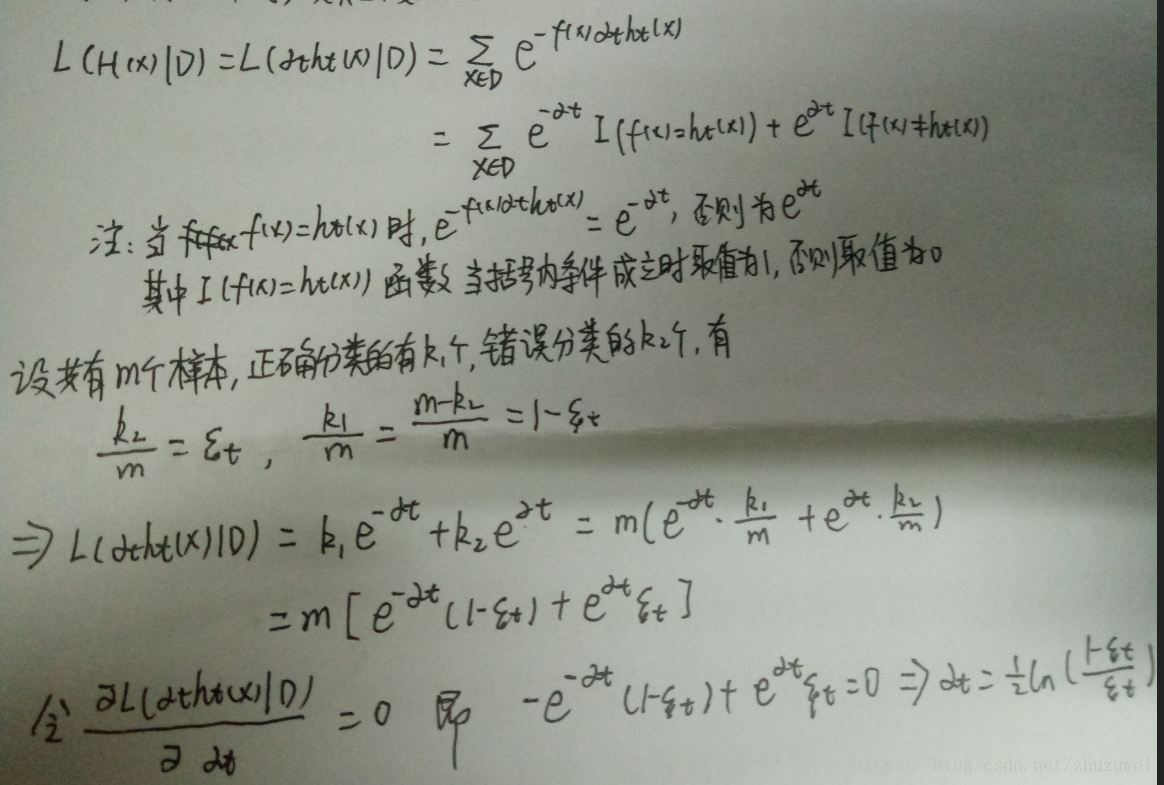 L(H(x)|D) = L(αtht(x)|D) = Σx∈D e^{-f(x)αtht(x)}
= Σx∈D e^{-αt} I(f(x)=ht(x)) + e^{αt} I(f(x)≠ht(x))
注: 当 f(x)=ht(x) 时, e^{-f(x)αtht(x)} = e^{-αt}, 否则为 e^{αt}
其中 I(f(x)=ht(x)) 函数 当括号内条件成立时取值为1, 否则取值为0
设共有m个样本, 正确分类的有k1个, 错误分类的k2个, 有
k2/m = εt, k1/m = (m-k2)/m = 1-εt
⇒ L(αtht(x)|D) = k1e^{-αt} + k2e^{αt} = m(e^{-αt}·k1/m + e^{αt}·k2/m)
= m[e^{-αt}(1-εt) + e^{αt}εt]
令 ∂L(αtht(x)|D)/∂αt = 0 即 -e^{-αt}(1-εt) + e^{αt}εt = 0 ⇒ αt = 1/2 ln((1-εt)/εt)
https://blog.csdn.net/zhuzuwei